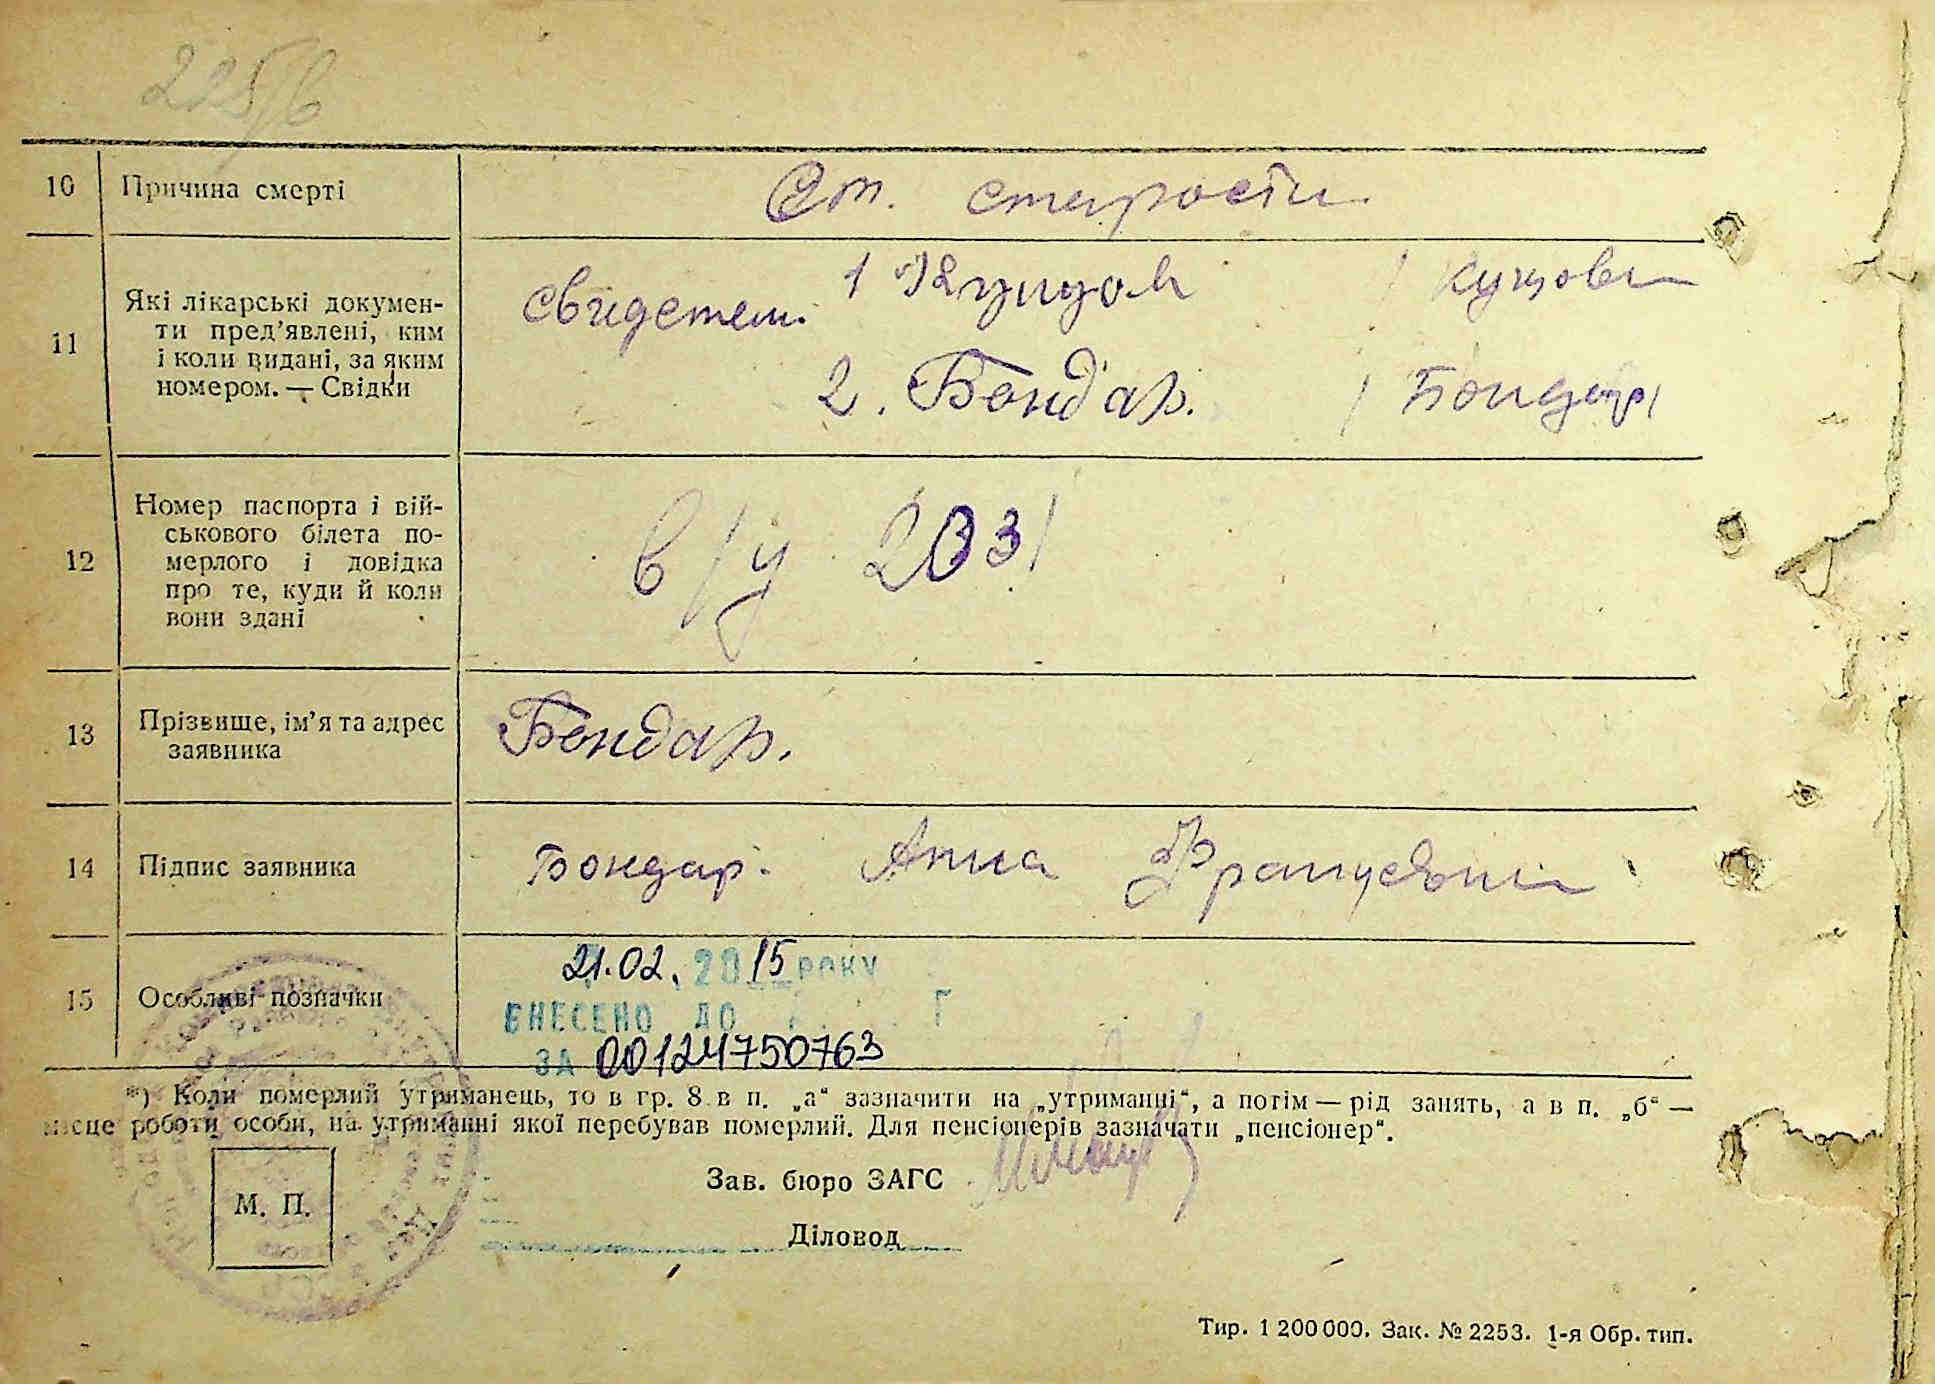 225/6
10 Причина смерті От. старости
11 Які лікарські докумен-
ти пред'явлені, ким
і коли видані, за яким
номером. — Свідки
свидетели. 1
2. Бондар. / Бондар/
12 Номер паспорта і вій-
ськового білета по-
мерлого і довідка
про те, куди й коли
вони здані
в/у 2033/
13 Прізвище, ім'я та адрес
заявника
Бондар.
14 Підпис заявника Бондар. Анна
15 Особливі позначки
21.02.2015 року
ВНЕСЕНО ДО Г
ЗА 00124750763
*) Коли померлий утриманець, то в гр. 8 в п. „а“ зазначити на „утриманні“, а потім — рід занять, а в п. „б“ —
місце роботи особи, на утриманні якої перебував померлий. Для пенсіонерів зазначати „пенсіонер“.
М. П.
Зав. бюро ЗАГС
Діловод
Тир. 1 200 000. Зак. № 2253. 1-я Обр. тип.